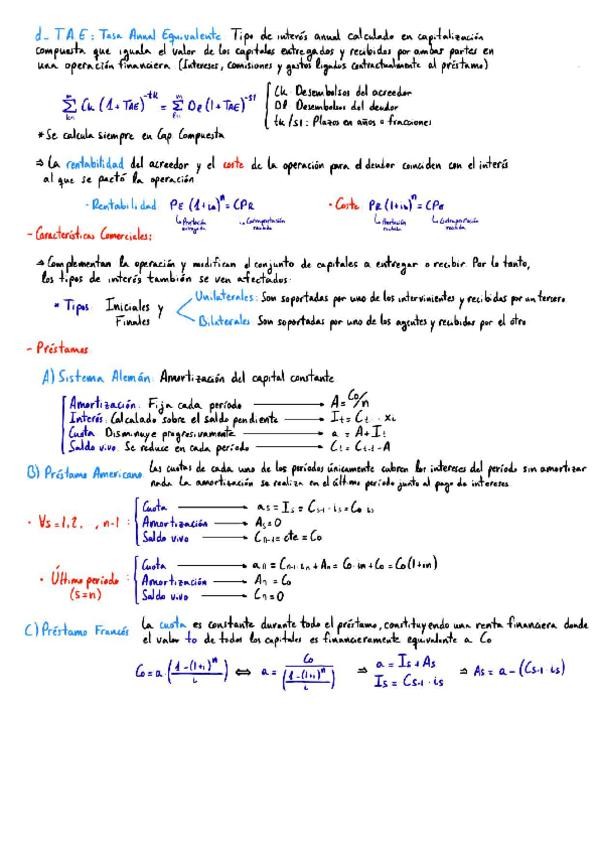 d- T.A.E: Tasa Anual Equivalente Tipo de interés anual calculado en capitalización
compuesta que iguala el valor de los capitales entregados y recibidos por ambas partes en
una operación financiera (Intereses, comisiones y gastos ligados contractualmente al préstamo)
Σ Ck (1+TAE)^-tk = Σ Dl (1+TAE)^-sl
Ck Desembolsos del acreedor
Dl Desembolsos del deudor
tk/sl: Plazos en años o fracciones
* Se calcula siempre en Cap Compuesta
⇒ La rentabilidad del acreedor y el coste de la operación para el deudor coinciden con el interés
al que se pactó la operación
· Rentabilidad PE (1+is)^n = CPR
· Coste PR (1+is)^n = CPE
Prestación entregada
Contraprestación recibida
Prestación recibida
Contraprestación
- Características Comerciales:
⇒ Complementan la operación y modifican el conjunto de capitales a entregar o recibir. Por lo tanto,
los tipos de interés también se ven afectados
* Tipos Iniciales y Finales
Unilaterales: Son soportadas por uno de los intervinientes y recibidas por un tercero
Bilaterales Son soportadas por uno de los agentes y recibidas por el otro
- Préstamos
A) Sistema Alemán: Amortización del capital constante
Amortización: Fija cada período → A = Co/n
Interés: Calculado sobre el saldo pendiente → It = Ct-1 · xi
Cuota Disminuye progresivamente → a = A + It
Saldo vivo Se reduce en cada período → Ct = Ct-1 - A
B) Préstamo Americano Las cuotas de cada uno de los períodos únicamente cubren los intereses del período sin amortizar
nada La amortización se realiza en el último período junto al pago de intereses
· ∀s = 1, 2, , n-1:
Cuota → as = Is = Cs-1 · is = Co · is
Amortización → As = 0
Saldo vivo → Cn-1 = cte = Co
· Último período (s=n)
Cuota → an = Cn-1 · in + An = Co · in + Co = Co(1+in)
Amortización → An = Co
Saldo vivo → Cn = 0
C) Préstamo Francés La cuota es constante durante todo el préstamo, constituyendo una renta financiera donde
el valor to de todos los capitales es financieramente equivalente a Co
Co = a · (1-(1+i)^n / i) ⟺ a = Co / (1-(1+i)^n / i) ⇒ a = Is + As
Is = Cs-1 · is ⇒ As = a - (Cs-1 · is)